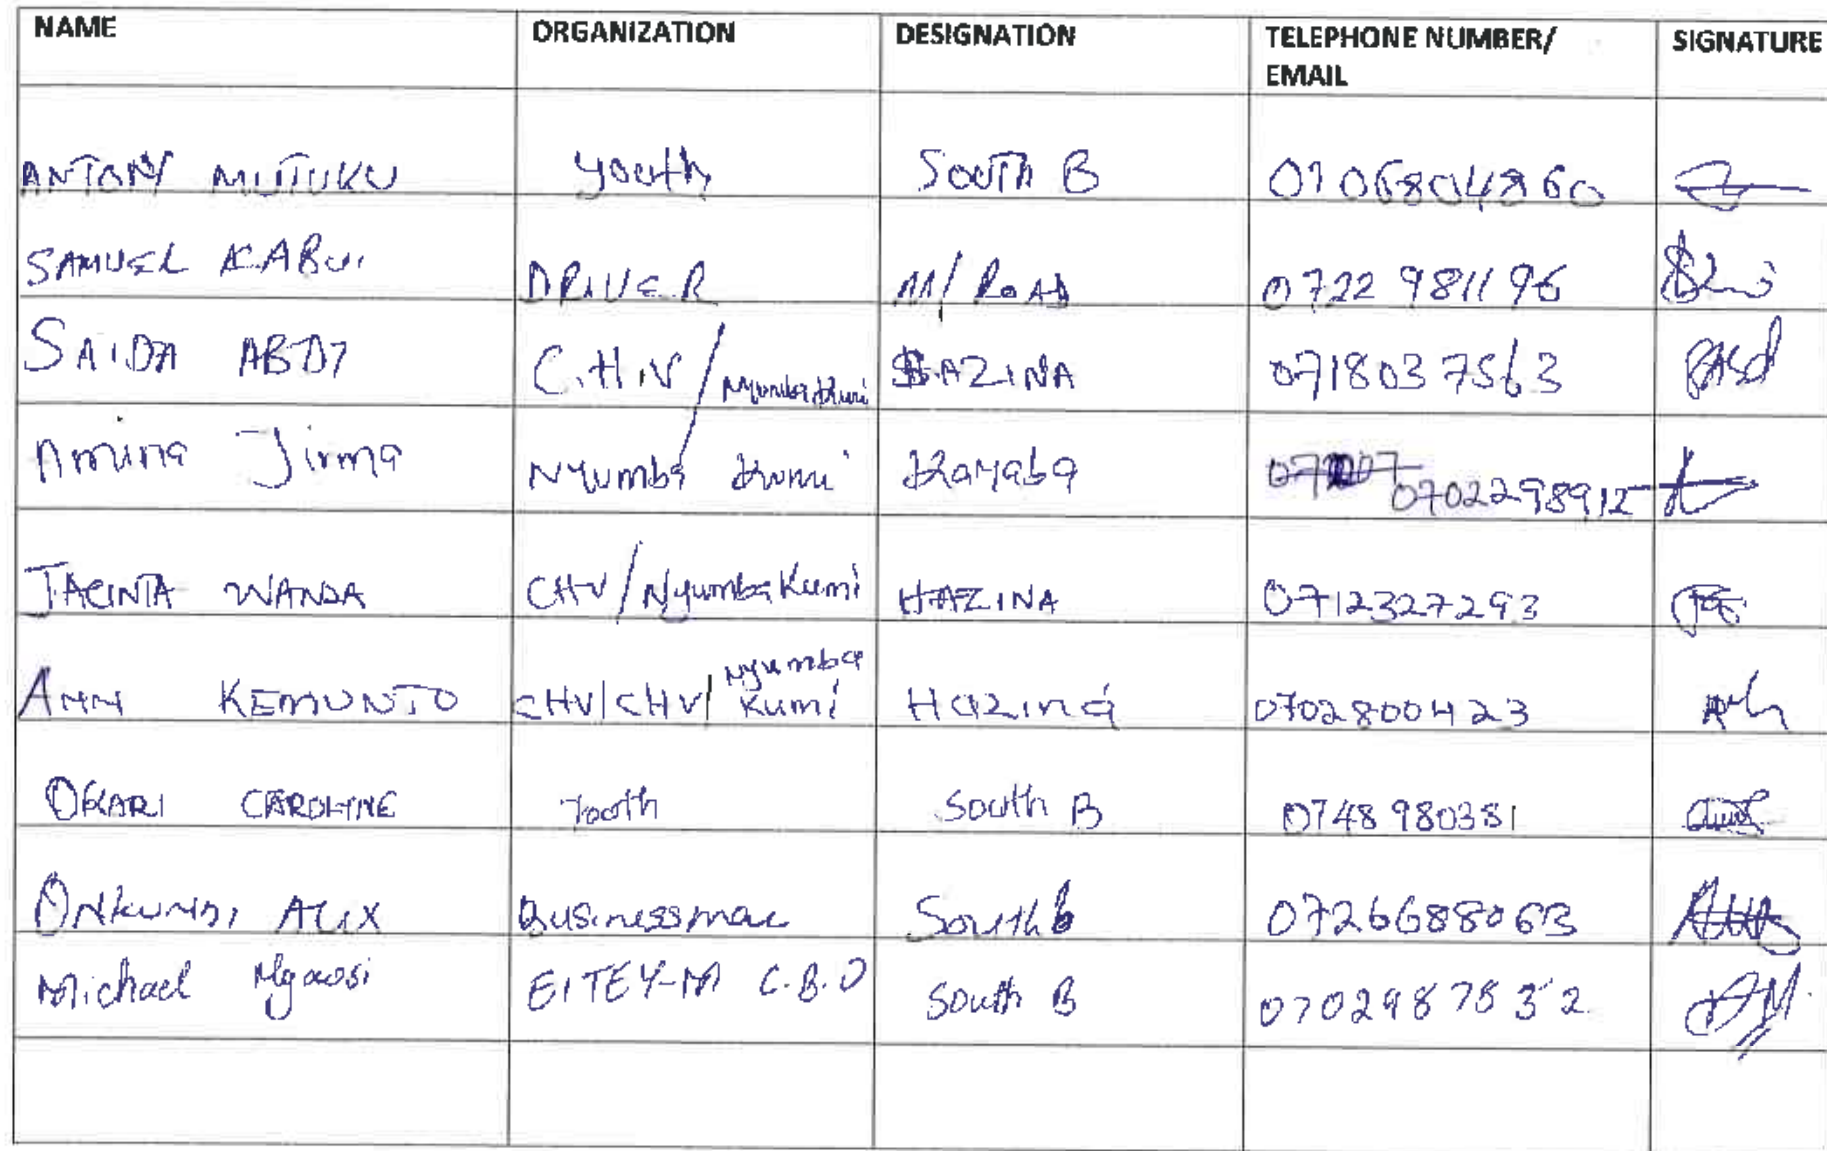 NAME ORGANIZATION DESIGNATION TELEPHONE NUMBER/ EMAIL SIGNATURE
ANTONY MUTUKU youth SOUTH B 0706804860
SAMUEL KABUI DRIVER M/ROAD 0722 981196
SAIDA ABDI C.H.V / Nyumba Kumi HAZINA 0718037563
Amina Jirma Nyumba Kumi Kayaba 0702298912
JACINTA WANDA CHV/Nyumba Kumi HAZINA 0712327293
ANN KEMUNTO CHV/CHV/ Nyumba Kumi Hazina 0702800423
OKARI CAROLINE Youth South B 0748980381
ONKUNDI ALEX Businessman South b 0726688063
Michael EITEY-M C.B.O South B 0702987532